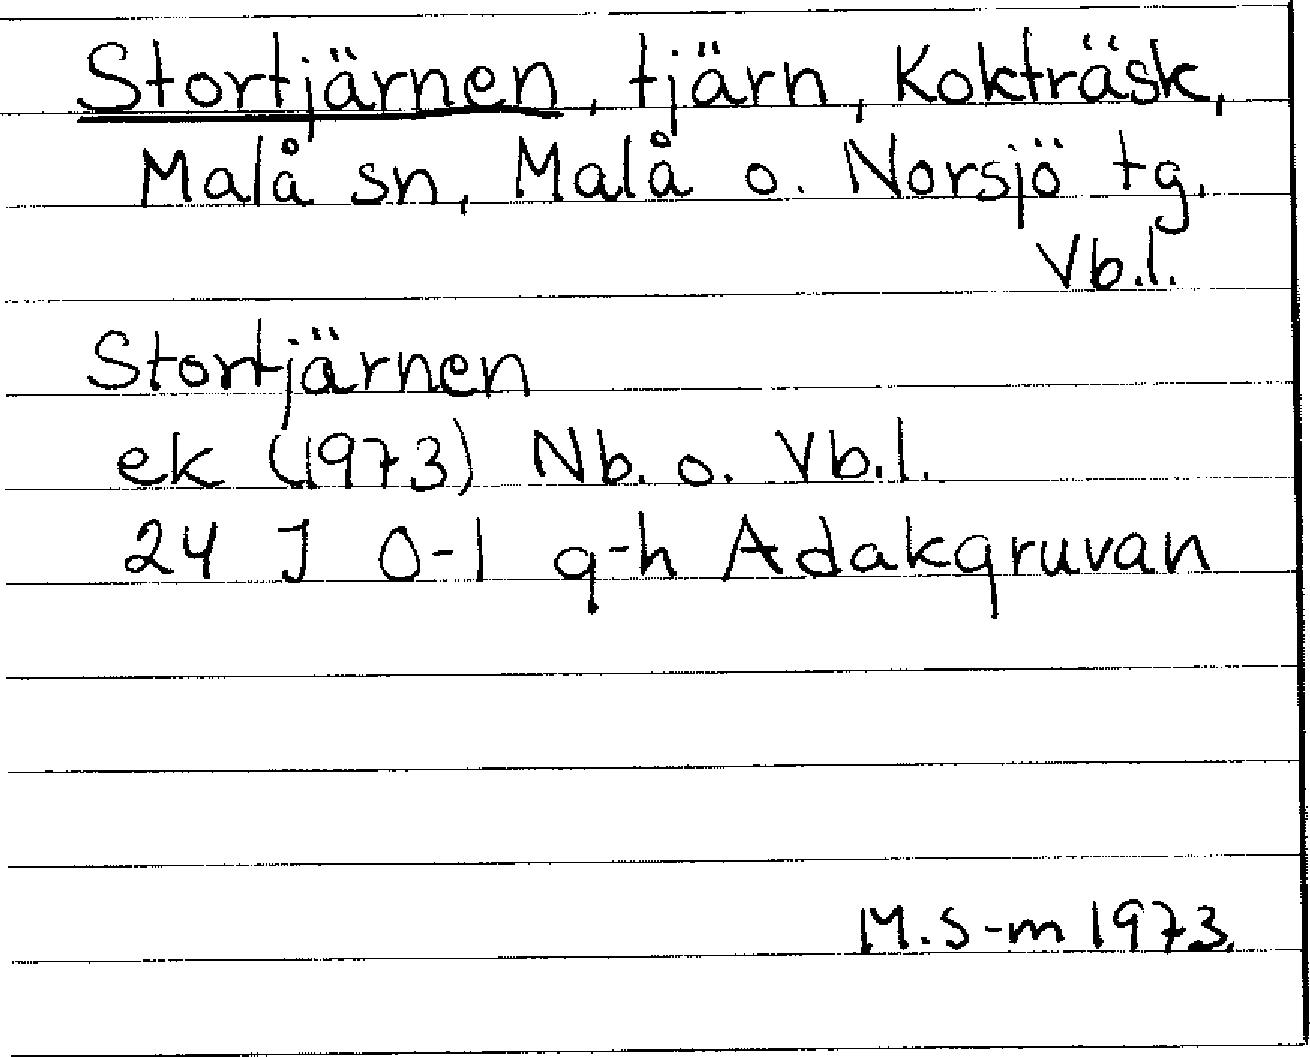 Stortjärnen, tjärn, Kokträsk,
Malå sn, Malå o. Norsjö tg.
Vb.l.
Stortjärnen
ek (1973) Nb. o. Vb.l.
24 J 0-1 g-h Adakgruvan
M.S-m 1973.